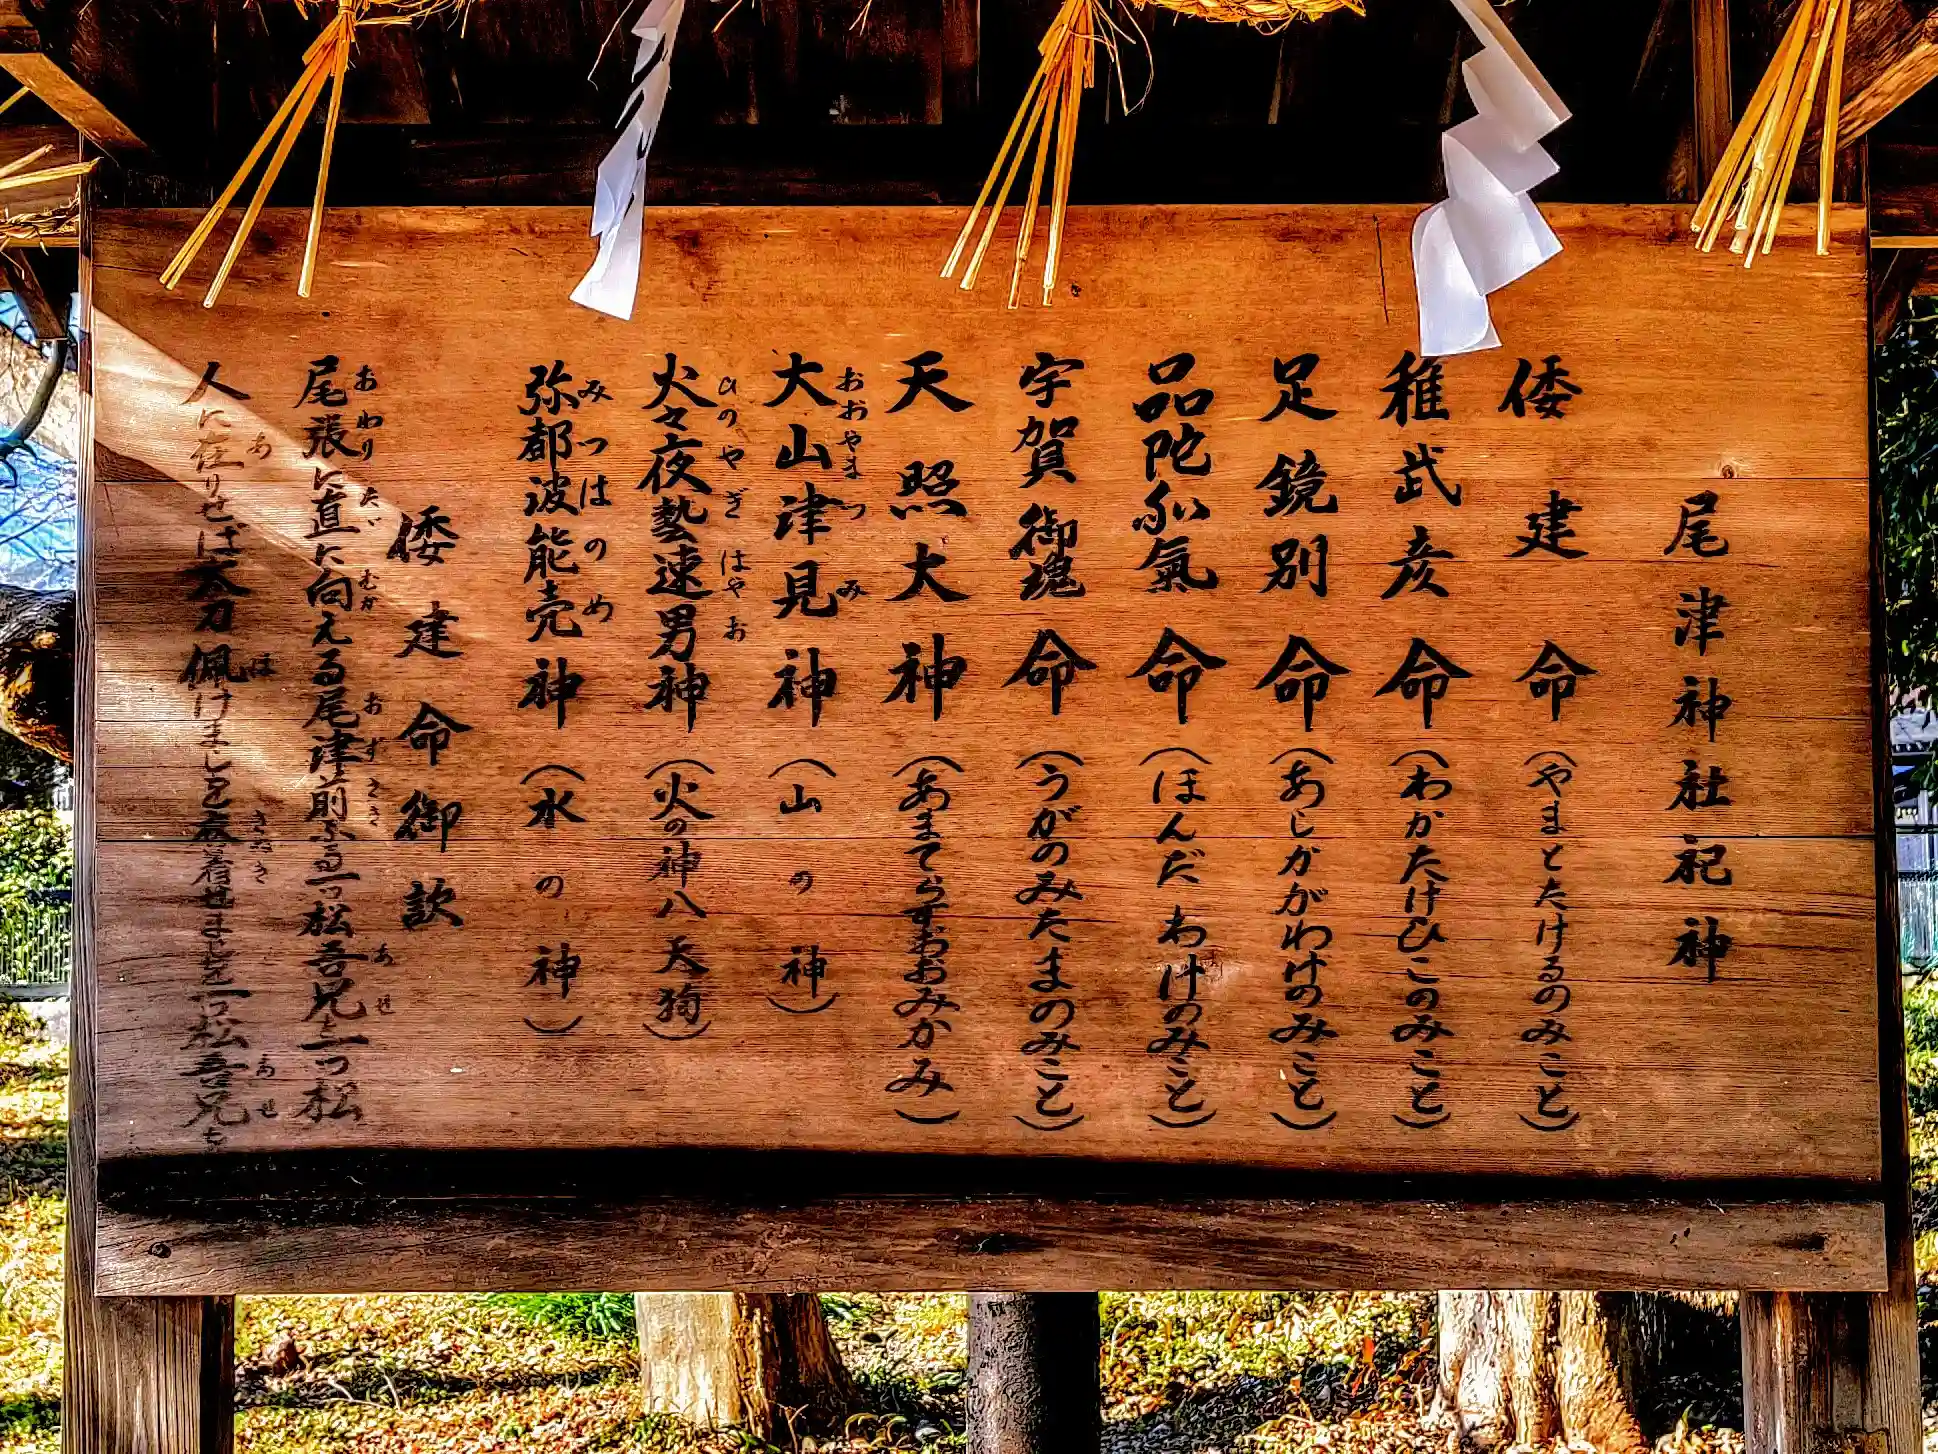 尾津神社祀神
倭建命（やまとたけるのみこと）
稚武彦命（わかたけひこのみこと）
足鏡別命（あしかがわけのみこと）
品陀和氣命（ほんだわけのみこと）
宇賀御魂命（うがのみたまのみこと）
天照大神（あまてらすおおみかみ）
おおやまつみ
大山津見神（山の神）
ひのやぎはやお
火々夜藝速男神（火の神八天狗）
みつはのめ
弥都波能売神（水の神）
倭建命御歌
あわり ただ むか おずさき あせ
尾張に直に向える尾津前なる一つ松吾兄を一つ松
あ は きぬき あせ
人に在りせば太刀佩けましを衣着せましを一つ松吾兄を